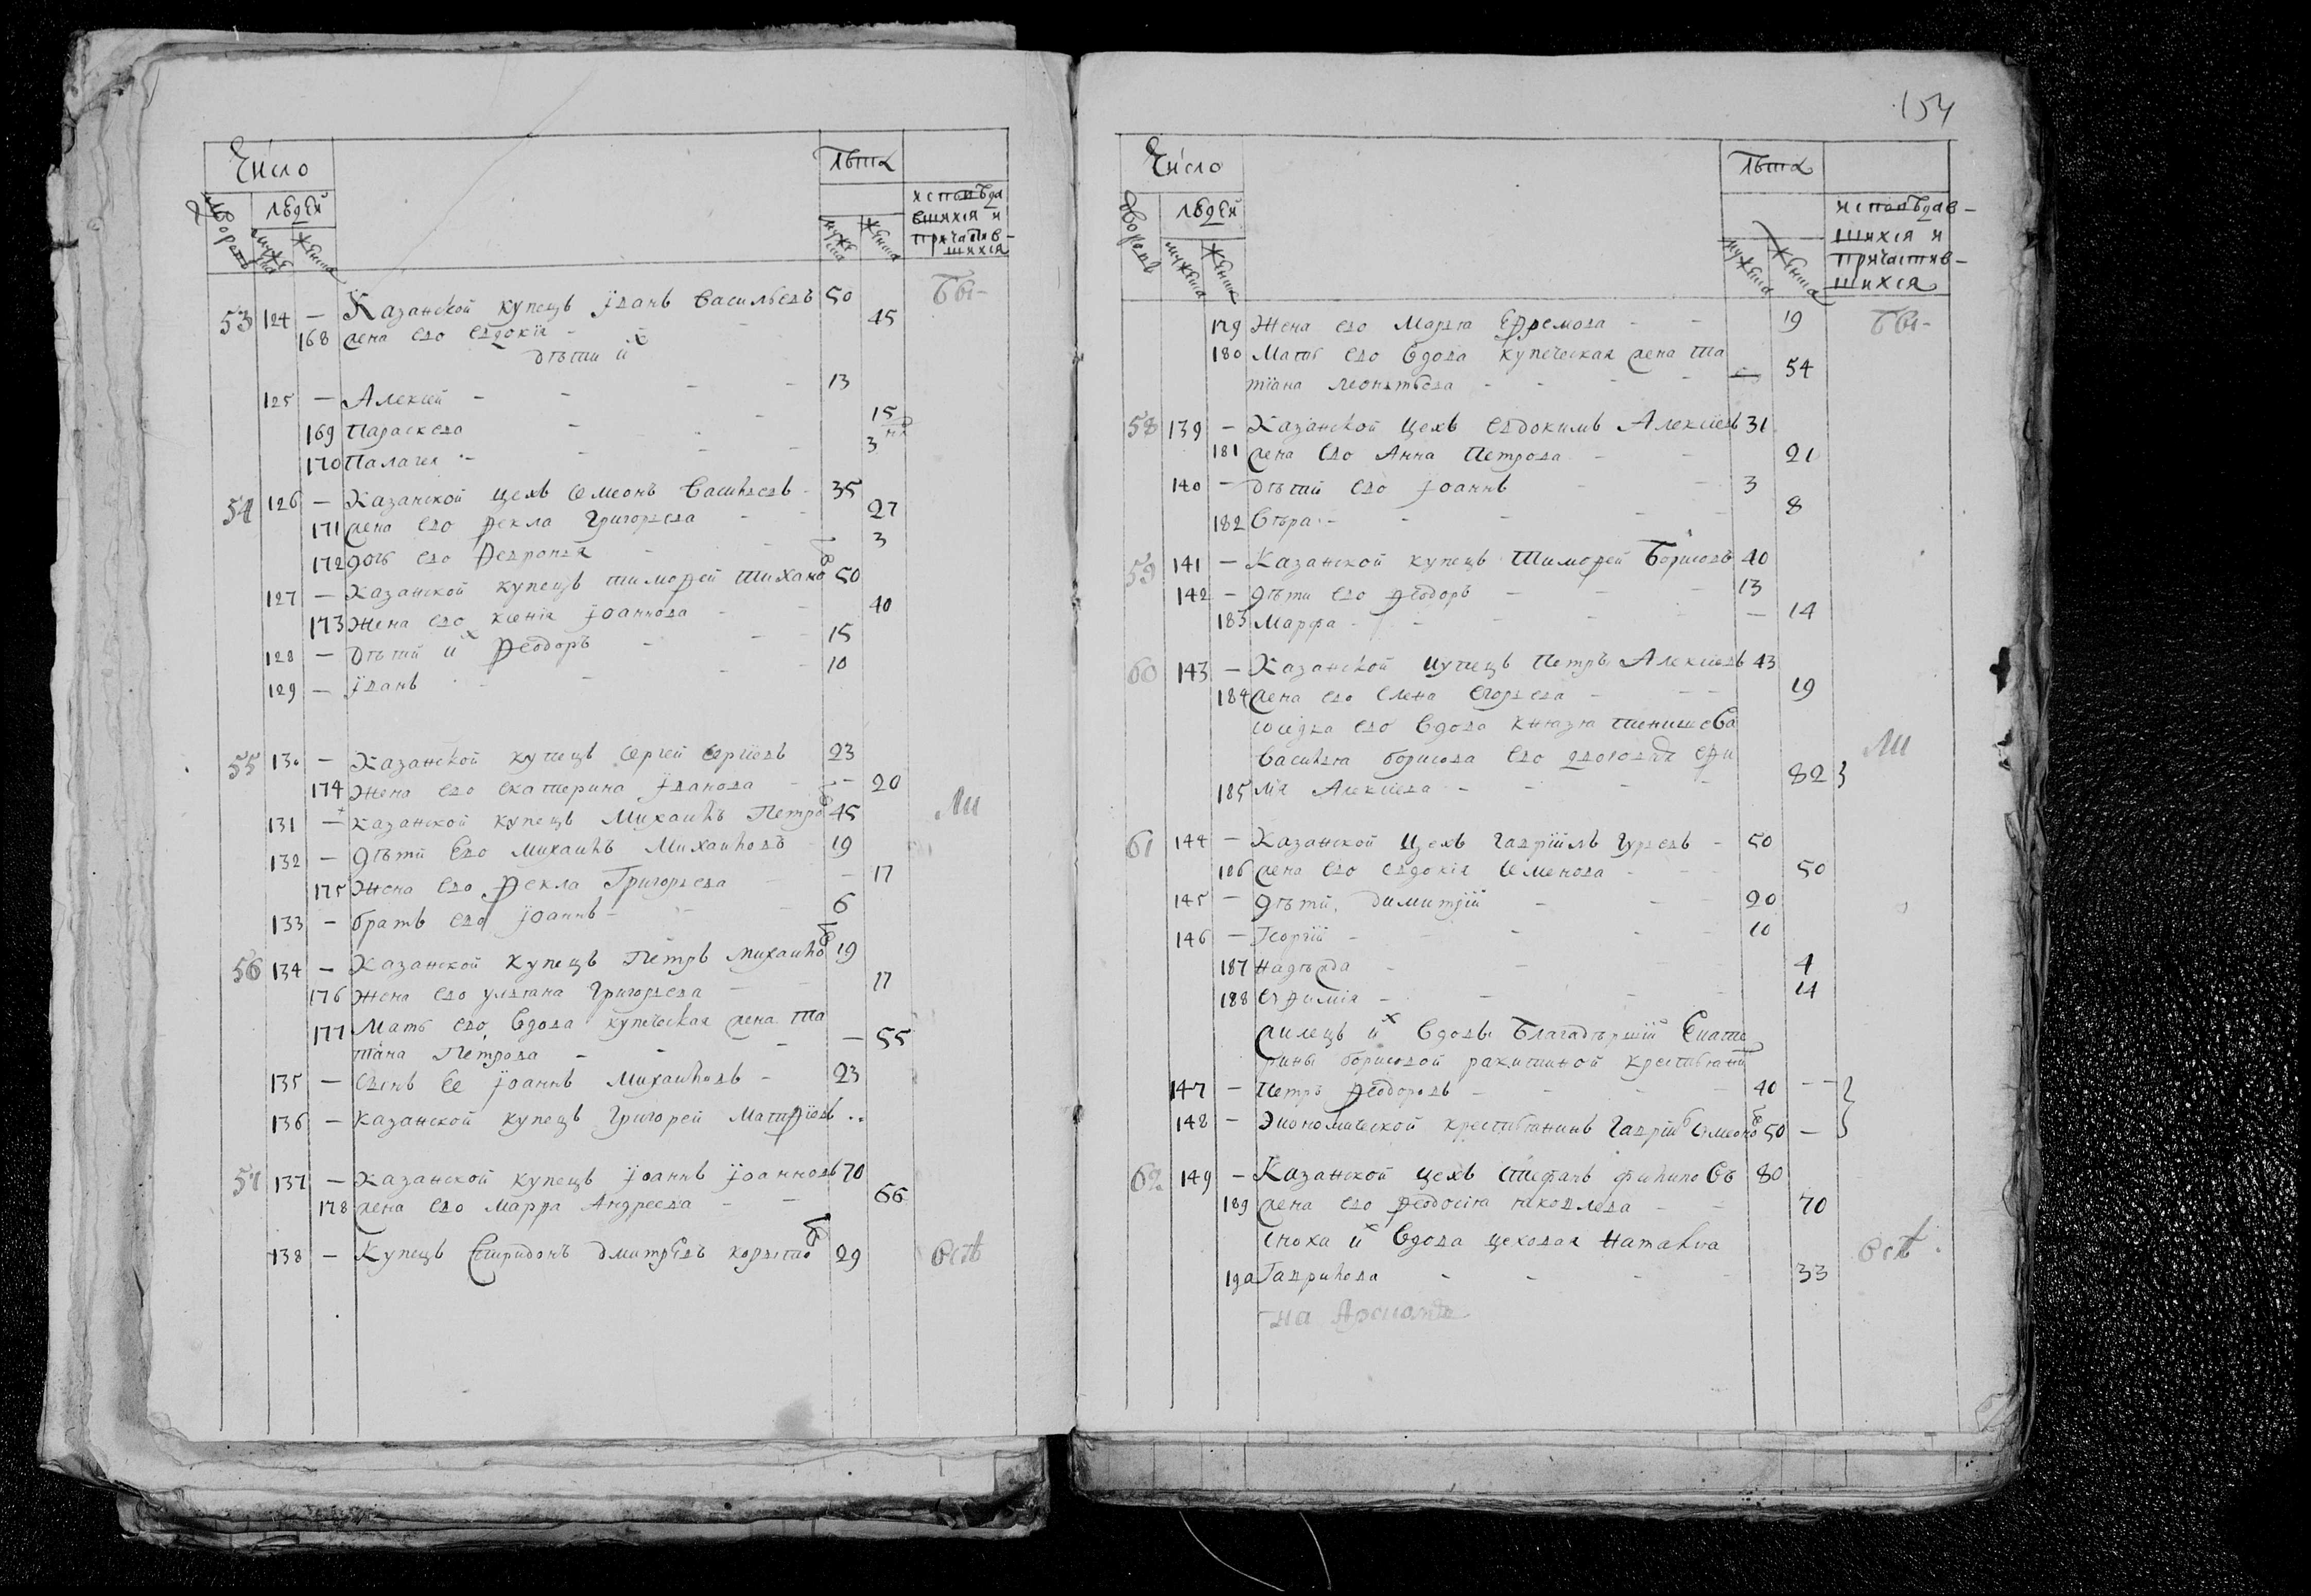 Число
Лѣта
дворовъ
людей
мужеска
женска
мужеска
женска
исповѣда
вшихся и
причастив-
шихся
53 124 — Казанской купецъ Іванъ Васильевъ 50
Бы-
168 жена его Евдокія - 45
дѣти ихъ
125 — Алексей - - - - 13
169 Параскева - - - 15
170 Палагея - - - - 3
54 126 — Казанской цехъ Семенъ Васильевъ - 35
171 жена его Фекла Григорьева - - 27
172 дочь его Февронья - - 3
127 — Казанской купецъ Тимофей Тихановъ 50
173 Жена его Ксенія Іоаннова - - 40
128 — дѣтий ихъ Феодоръ - - - 15
129 — Іванъ - - - - 10
55 130 — Казанской купецъ Сергей Сергіевъ 23
174 Жена его Екатерина Іванова - - 20
131 — Казанской купецъ Михаилъ Петровъ 45
132 — дѣти Его Михаилъ Михаиловъ - 19
175 Жена его Фекла Григорьева - — 17
133 — братъ его Іоаннъ - - - 6
56 134 — Казанской Купецъ Петръ Михаиловъ 19
176 Жена его Ульяна Григорьева - - 17
177 Мать его Вдова купеческая жена Та
тіана Петрова - - - — 55
135 — Сынъ Ее Іоаннъ Михаиловъ - 23
136 — Казанской купецъ Григорей Матфіевъ ..
57 137 — Казанской Купецъ Іоаннъ Іоанновъ 70
178 жена его Марфа Андреева - - 66
138 — Купецъ Спиридонъ Дмитревъ 29
154
Число
Лѣта
дворовъ
людей
мужеска
женска
мужеска
женска
исповѣдав-
шихся и
причастив-
шихся
179 Жена его Марья Ефремова - - 19
Бы-
180 Мать его Вдова купеческая жена Та
тіана Леонтьева - - - - — 54
58 139 — Казанской цехъ Евдокимъ Алексіевъ 31
181 жена Его Анна Петрова - - 21
140 — дѣтий его Іоаннъ - - 3
182 Вѣра - - - - - 8
59 141 — Казанской купецъ Тимофей Борисовъ 40
142 — дѣти его Феодоръ - - - 13
183 Марфа - - - - — 14
60 143 — Казанской купецъ Петръ Алексіевъ 43
184 жена его Елена Егорьева - - - 19
Василья Борисова Его
185 Алексіева - - - - 82
61 144 — Казанской Цехъ Гавріилъ Гурьевъ - 50
186 жена его Евдокія Семенова - - 50
145 — дѣти, Димитрій - - - 20
146 — Георгій - - - - - 10
187 Надѣжда - - - 4
188 Евфимія - - - - 14
жилецъ ихъ Вдовы Екате
рины Борисовой Ракитиной крестьяни
147 — Петръ Феодоровъ - - - 40 — —
148 — Экономической крестьянинъ Гавріилъ Семеновъ 50 —
62 149 — Казанской цехъ Стефанъ Филиповъ 80
189 жена его Феодосія Яковлева - - 70
сноха ихъ Вдова цеховая Наталья
190 Гаврилова - - - - 33